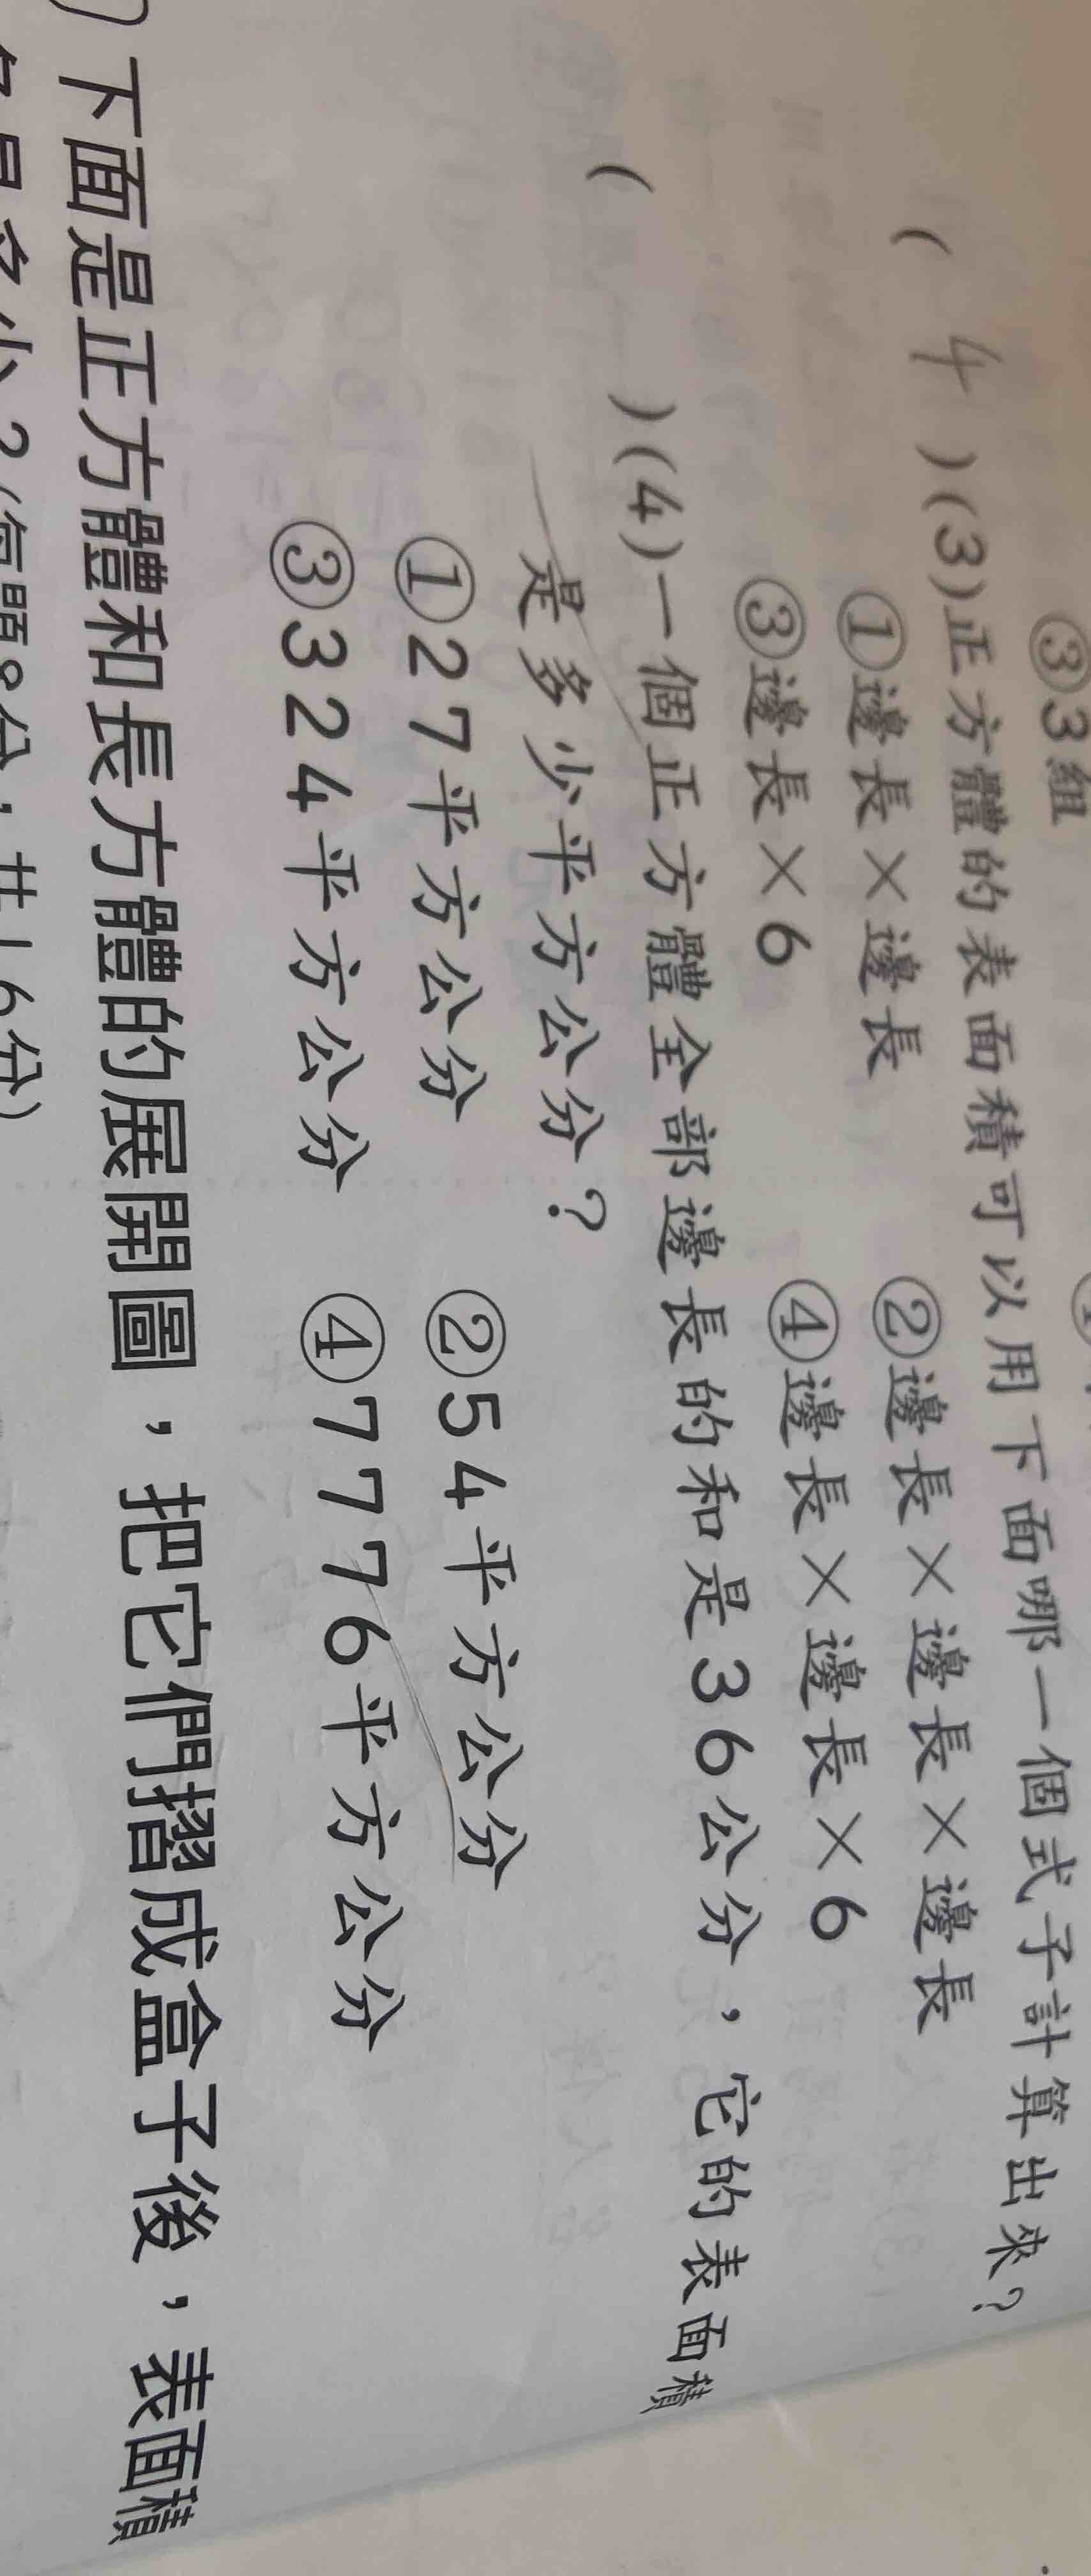 ③3組
( 4 )(3)正方體的表面積可以用下面哪一個式子計算出來？
①邊長×邊長 ②邊長×邊長×邊長
③邊長×6 ④邊長×邊長×6
( )(4)一個正方體全部邊長的和是36公分，它的表面積
是多少平方公分？
①27平方公分 ②54平方公分
③324平方公分 ④7776平方公分
下面是正方體和長方體的展開圖，把它們摺成盒子後，表面積
是多少？(每題8分，共16分)